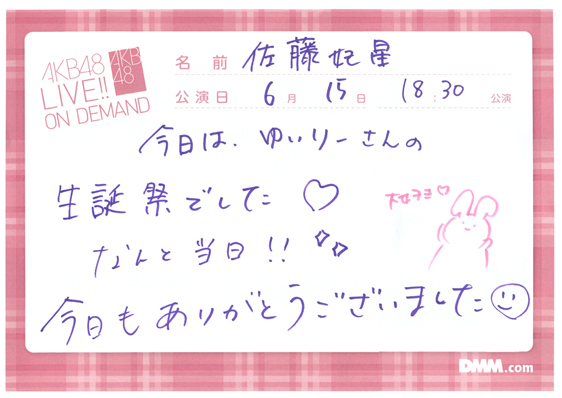 AKB48
LIVE!!
ON DEMAND
AKB
48
名前 佐藤妃星
公演日 6月 15日 18:30 公演
今日は、ゆいりーさんの
生誕祭でした♡
大好き♡
なんと当日!!
今日もありがとうございました
DMM.com